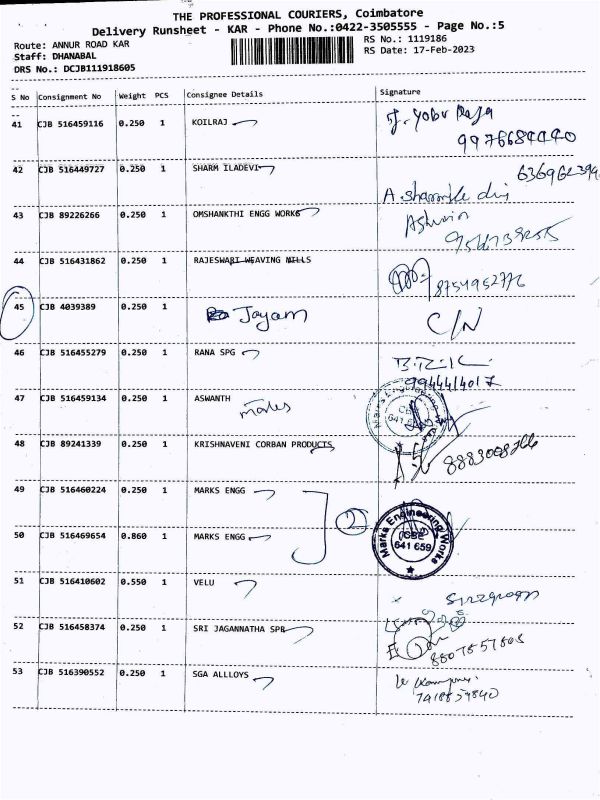 THE PROFESSIONAL COURIERS, Coimbatore
Delivery Runsheet - KAR - Phone No.:0422-3505555 - Page No.:5
Route: ANNUR ROAD KAR
RS No.: 1119186
Staff: DHANABAL
RS Date: 17-Feb-2023
DRS No.: DCJB111918605
S No Consignment No Weight PCS Consignee Details Signature
41 CJB 516459116 0.250 1 KOILRAJ
42 CJB 516449727 0.250 1 SHARM ILADEVI
43 CJB 89226266 0.250 1 OMSHANKTHI ENGG WORKS Ashwin
44 CJB 516431862 0.250 1 RAJESWARI WEAVING MILLS 8754952776
45 CJB 4039389 0.250 1 Jayam C/N
46 CJB 516455279 0.250 1 RANA SPG
9944414017
47 CJB 516459134 0.250 1 ASWANTH
48 CJB 89241339 0.250 1 KRISHNAVENI CORBAN PRODUCTS
49 CJB 516460224 0.250 1 MARKS ENGG
2
50 CJB 516469654 0.860 1 MARKS ENGG Marks Engineering Works CBE 641 659
51 CJB 516410602 0.550 1 VELU
52 CJB 516458374 0.250 1 SRI JAGANNATHA SPR
8807857808
53 CJB 516390552 0.250 1 SGA ALLLOYS
7418859840